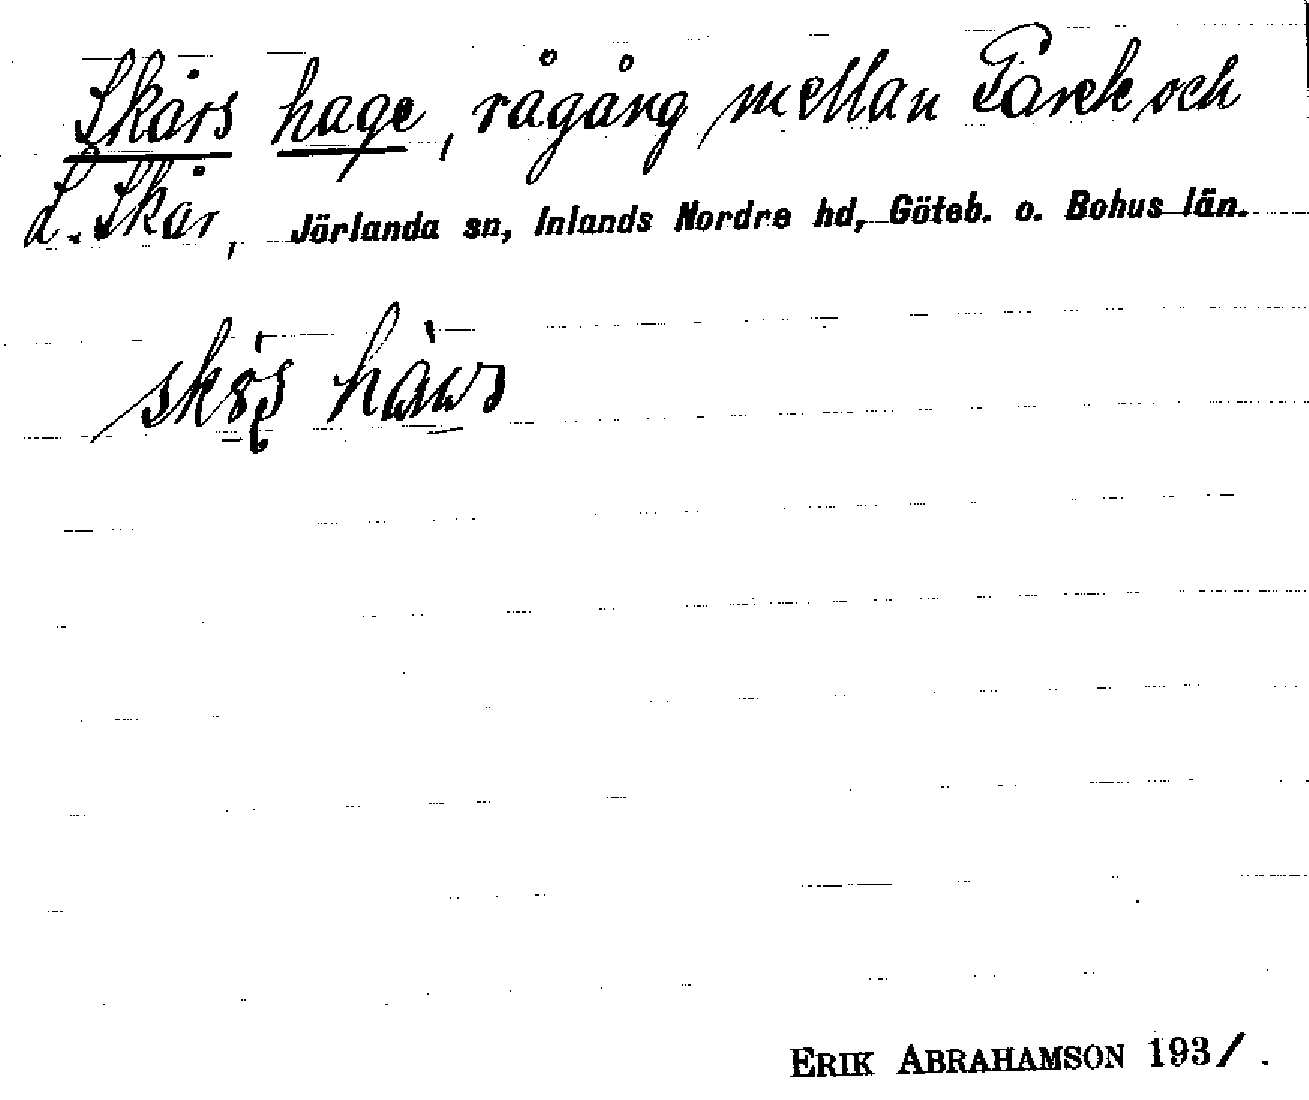 Skårs hage, rågång mellan Tåreh och
L. Skår, Jörlanda sn, Inlands Nordre hd, Göteb. o. Bohus län.
ERIK ABRAHAMSON 1931.